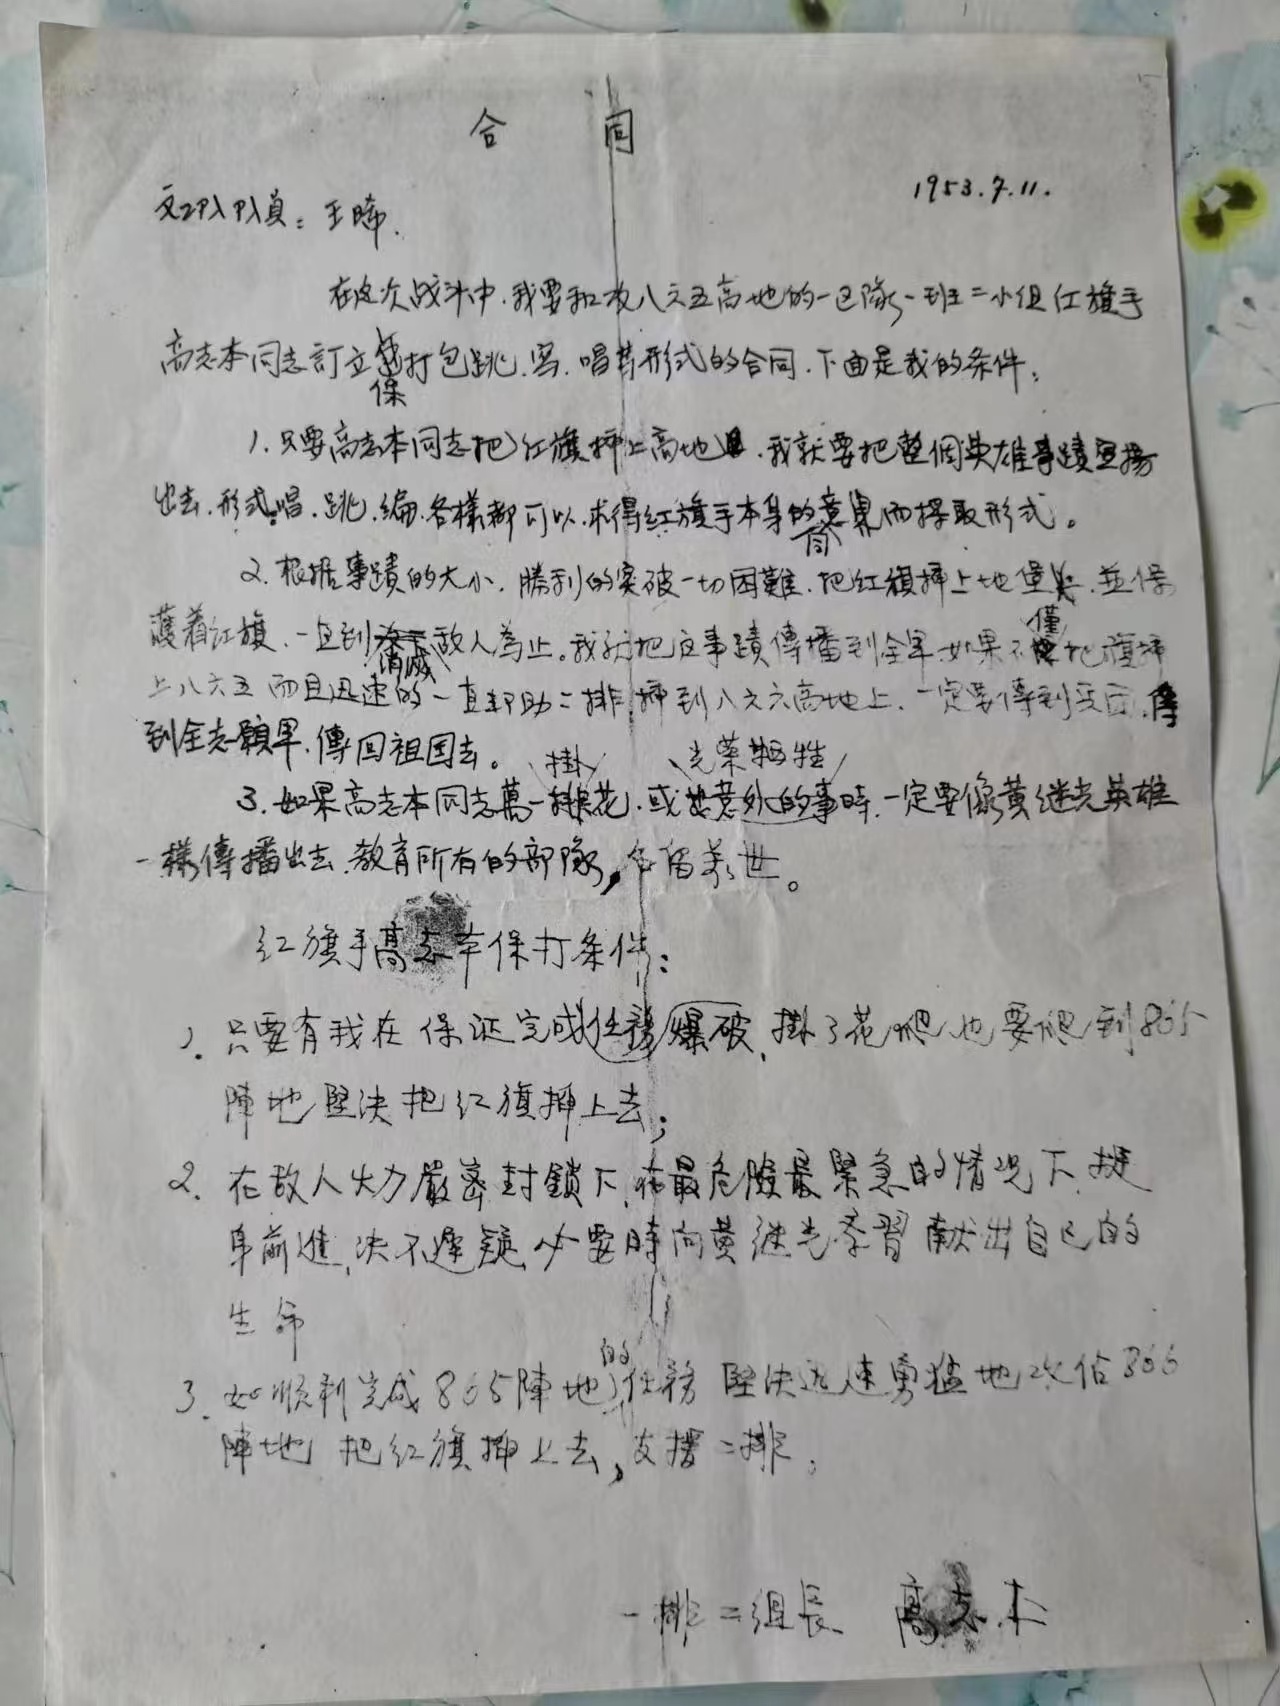 合 同
1953.7.11.
文工队队员：王晞.
在这次战斗中.我要和攻八六五高地的一区隊一班二小组红旗手
高志本同志訂立保打包跳.写.唱等形式的合同.下面是我的条件：
1.只要高志本同志把红旗插上高地.我就要把整個英雄事蹟宣揚
出去.形式.唱.跳.編.各樣都可以.求得红旗手本身的同意而採取形式。
2.根据事蹟的大小.勝利的突破一切困難.把红旗插上地堡.並保
護着红旗.一直到消滅敌人為止。我就把这事蹟傳播到全军.如果不僅把旗插
上八六五而且迅速的一直帮助二排插到八六六高地上.一定要傳到.傳
到全志願军.傳回祖国去。
3.如果高志本同志萬一掛花.或光荣牺牲時.一定要像黄继光英雄
一樣傳播出去.教育所有的部隊，名留萬世。
红旗手高志本保打条件：
1.只要有我在保证完成爆破任務,掛了花爬也要爬到865
陣地堅决把红旗插上去；
2.在敌人火力嚴密封鎖下,在最危險最緊急的情况下,挺
身前進,决不遲疑,必要時向黄继光学習献出自己的
生命
3.如順利完成865陣地的任務堅决迅速勇猛地攻佔866
陣地把红旗插上去,支援二排.
一排二组長 高志本